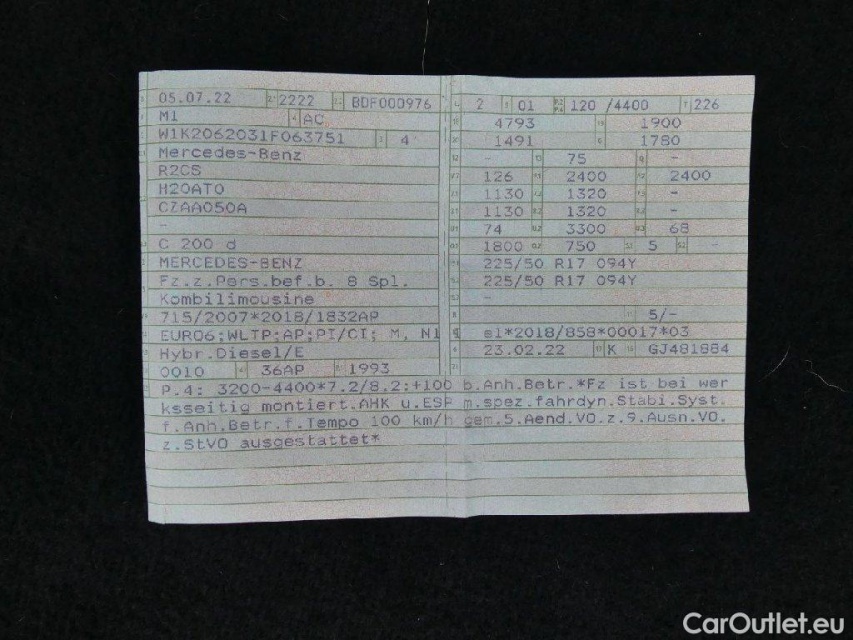 05.07.22 2222 BDF000976 2 01 120 /4400 226
M1 AC 4793 1900
W1K2062031F063751 4 1491 1780
Mercedes-Benz - 75 -
R2CS 126 2400 2400
H2OATO 1130 1320 -
CZAA050A 1130 1320 -
- 74 3300 68
C 200 d 1800 750 5 -
MERCEDES-BENZ 225/50 R17 094Y
Fz.z.Pers.bef.b. 8 Spl. 225/50 R17 094Y
Kombilimousine -
715/2007*2018/1832AP 5/-
EURO6;WLTP;AP;PI/CI; M, N1 e1*2018/858*00017*03
Hybr.Diesel/E 23.02.22 K GJ481884
0010 36AP 1993
P.4: 3200-4400*7.2/8.2:+100 b.Anh.Betr.*Fz ist bei wer
ksseitig montiert.AHK u.ESP m.spez.fahrdyn.Stabi.Syst.
f.Anh.Betr.f.Tempo 100 km/h gem.5.Aend.VO.z.9.Ausn.VO.
z.StVO ausgestattet*
CarOutlet.eu